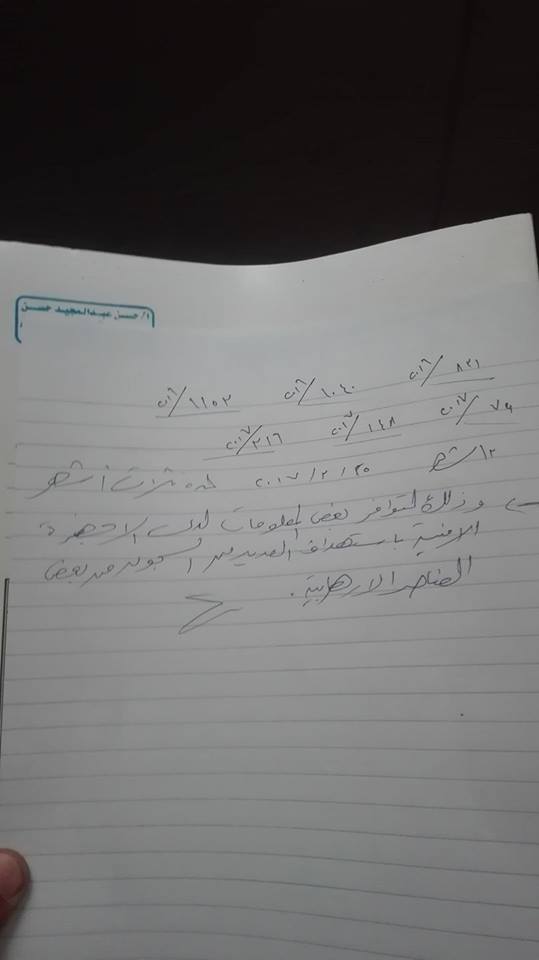 ا/حسن عبدالمجيد حسن
٨٢١/٢٠١٦ ١٠٤٠/٢٠١٦ ١١٥٢/٢٠١٦
٧٩/٢٠١٧ ١٤٨/٢٠١٧ ٢١٦/٢٠١٧
٢٠١٧/٢/٢٥ لمدة ثلاث أشهر
وذلك لتوافر بعض المعلومات لدى الاجهزة
الامنية باستهداف العديد من السجون من بعض
العناصر الارهابية.